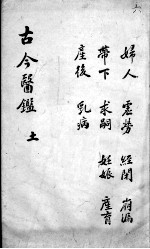 六
婦人 虛勞 經閉 崩漏
帶下 求嗣 妊娠 產育
產後 乳病
古今醫鑑 土